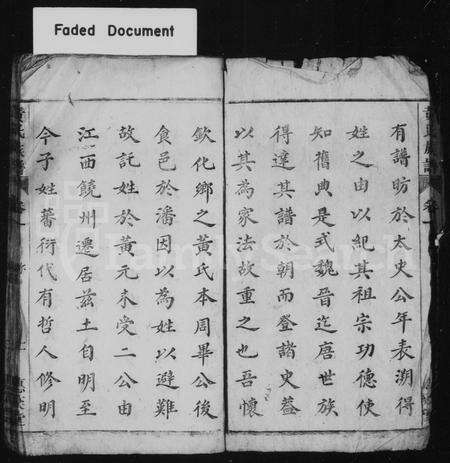 Faded Document
有譜昉於太史公年表溯得
姓之由以紀其祖宗功德使
知舊典是式魏晉迄唐世族
得達其譜於朝而登諸史蓋
以其為家法故重之也吾懷
欽化鄉之黃氏本周畢公後
食邑於潘因以為姓以避難
故託姓於黃元末受二公由
江西饒州遷居茲土自明至
今子姓蕃衍代有哲人修明